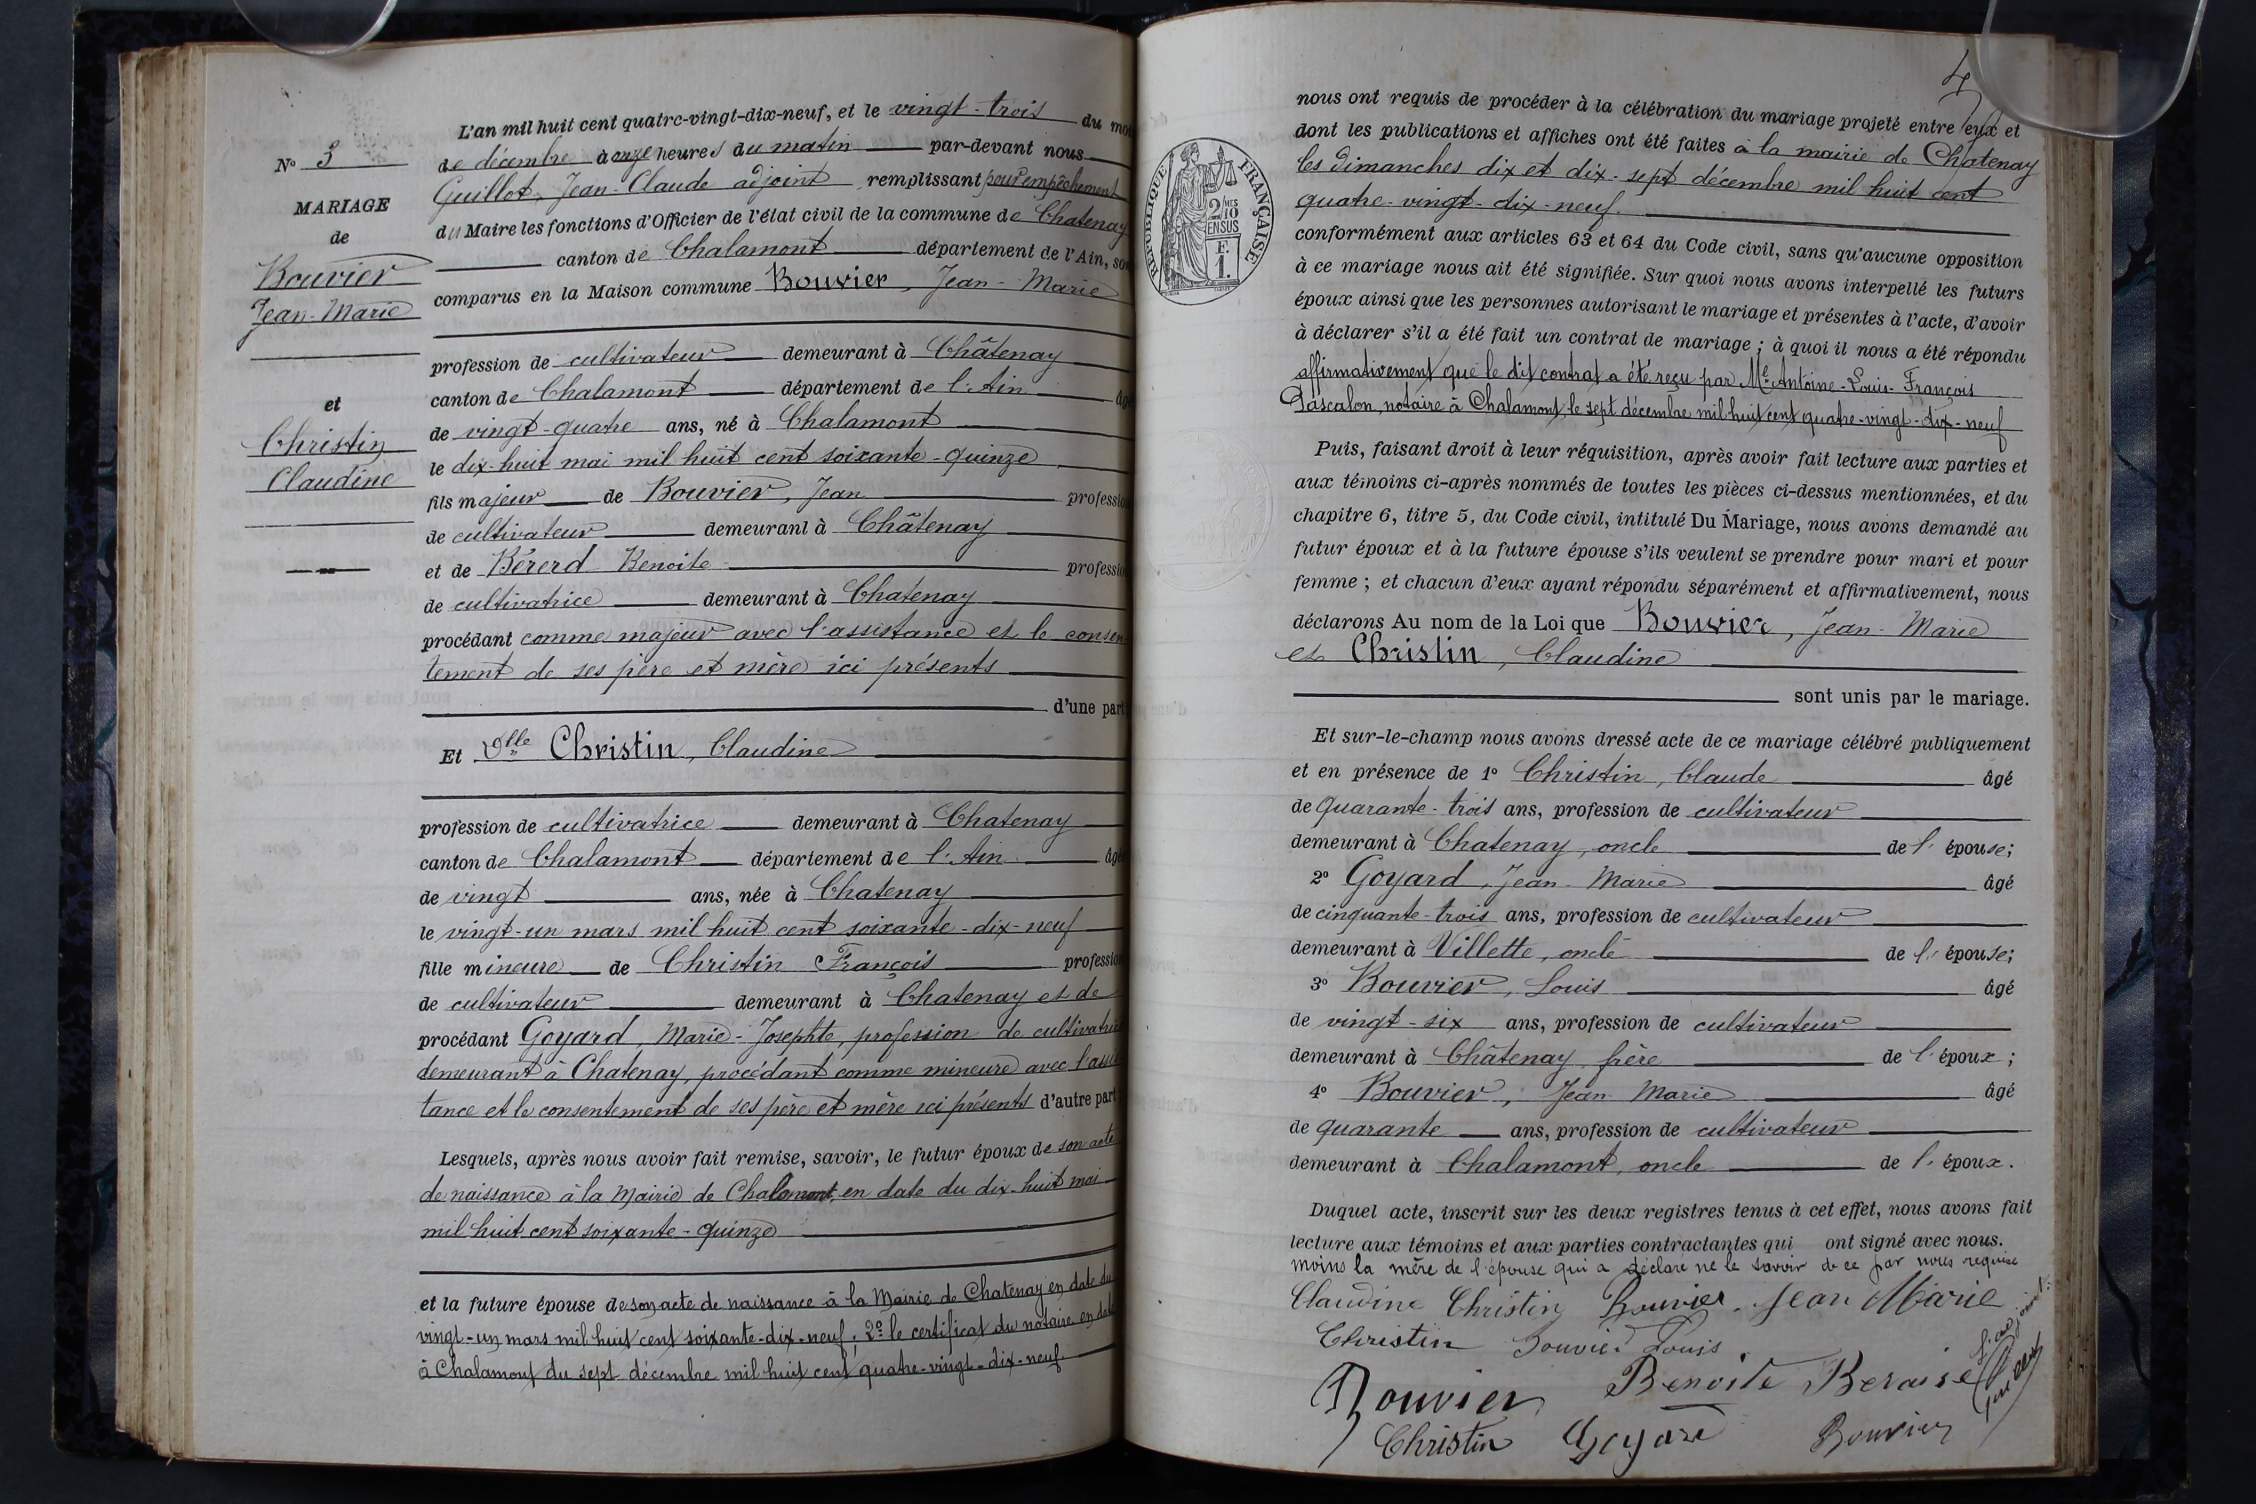 N° 3
MARIAGE
de
Bouvier
Jean-Marie
et
Christin
Claudine
L'an mil huit cent quatre-vingt-dix-neuf, et le vingt-trois du moi
de décembre à onze heures du matin par-devant nous
Guillot, Jean-Claude adjoint remplissant pour empêchement
du Maire les fonctions d'Officier de l'état civil de la commune de Chatenay
canton de Chalamont département de l'Ain, son
comparus en la Maison commune Bouvier, Jean-Marie
profession de cultivateur demeurant à Châtenay
canton de Chalamont département de l'Ain âgé
de vingt-quatre ans, né à Chalamont
le dix-huit mai mil huit cent soixante-quinze
fils majeur de Bouvier, Jean profession
de cultivateur demeurant à Châtenay
et de Bérerd Benoite profession
de cultivatrice demeurant à Chatenay
procédant comme majeur avec l'assistance et le consen-
tement de ses père et mère ici présents
d'une part
Et Dlle Christin, Claudine
profession de cultivatrice demeurant à Chatenay
canton de Chalamont département de l'Ain âgée
de vingt ans, née à Chatenay
le vingt-un mars mil huit cent soixante-dix-neuf
fille mineure de Christin François profession
de cultivateur demeurant à Chatenay et de
procédant Goyard, Marie-Josephte, profession de cultivatrice
demeurant à Chatenay, procédant comme mineure avec l'assis
tance et le consentement de ses père et mère ici présents d'autre part
Lesquels, après nous avoir fait remise, savoir, le futur époux de son acte
de naissance à la Mairie de Chalamont, en date du dix-huit mai
mil huit cent soixante-quinze
et la future épouse de son acte de naissance à la Mairie de Chatenay en date du
vingt-un mars mil huit cent soixante-dix-neuf; 2° le certificat du notaire en date
à Chalamont du sept décembre mil huit cent quatre-vingt-dix-neuf
4
RÉPUBLIQUE FRANÇAISE
2/10MES
EN SUS
F.
1.
nous ont requis de procéder à la célébration du mariage projeté entre eux et
dont les publications et affiches ont été faites à la mairie de Chatenay
les dimanches dix et dix-sept décembre mil huit cent
quatre-vingt-dix-neuf.
conformément aux articles 63 et 64 du Code civil, sans qu'aucune opposition
à ce mariage nous ait été signifiée. Sur quoi nous avons interpellé les futurs
époux ainsi que les personnes autorisant le mariage et présentes à l'acte, d'avoir
à déclarer s'il a été fait un contrat de mariage; à quoi il nous a été répondu
affirmativement que le dit contrat a été reçu par Me Antoine-Louis-François
Pascalon, notaire à Chalamont, le sept décembre mil huit cent quatre-vingt-dix-neuf
Puis, faisant droit à leur réquisition, après avoir fait lecture aux parties et
aux témoins ci-après nommés de toutes les pièces ci-dessus mentionnées, et du
chapitre 6, titre 5, du Code civil, intitulé Du Mariage, nous avons demandé au
futur époux et à la future épouse s'ils veulent se prendre pour mari et pour
femme; et chacun d'eux ayant répondu séparément et affirmativement, nous
déclarons Au nom de la Loi que Bouvier, Jean-Marie
et Christin, Claudine
sont unis par le mariage.
Et sur-le-champ nous avons dressé acte de ce mariage célébré publiquement
et en présence de 1° Christin, Claude âgé
de quarante-trois ans, profession de cultivateur
demeurant à Chatenay, oncle de l'épouse;
2° Goyard, Jean-Marie âgé
de cinquante-trois ans, profession de cultivateur
demeurant à Villette, oncle de l'épouse;
3° Bouvier, Louis âgé
de vingt-six ans, profession de cultivateur
demeurant à Châtenay frère de l'époux;
4° Bouvier, Jean Marie âgé
de quarante ans, profession de cultivateur
demeurant à Chalamont, oncle de l'époux.
Duquel acte, inscrit sur les deux registres tenus à cet effet, nous avons fait
lecture aux témoins et aux parties contractantes qui ont signé avec nous.
moins la mère de l'épouse qui a déclaré ne le savoir de ce par nous requise
Claudine Christin Bouvier Jean Marie
Christin Bouvier Louis
Bouvier Benoite Beraise
Christin Goyard Bouvier